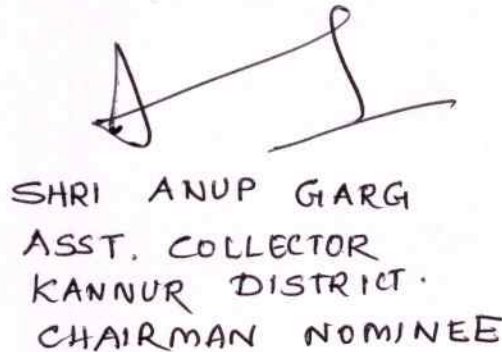 SHRI ANUP GARG
ASST. COLLECTOR
KANNUR DISTRICT.
CHAIRMAN NOMINEE